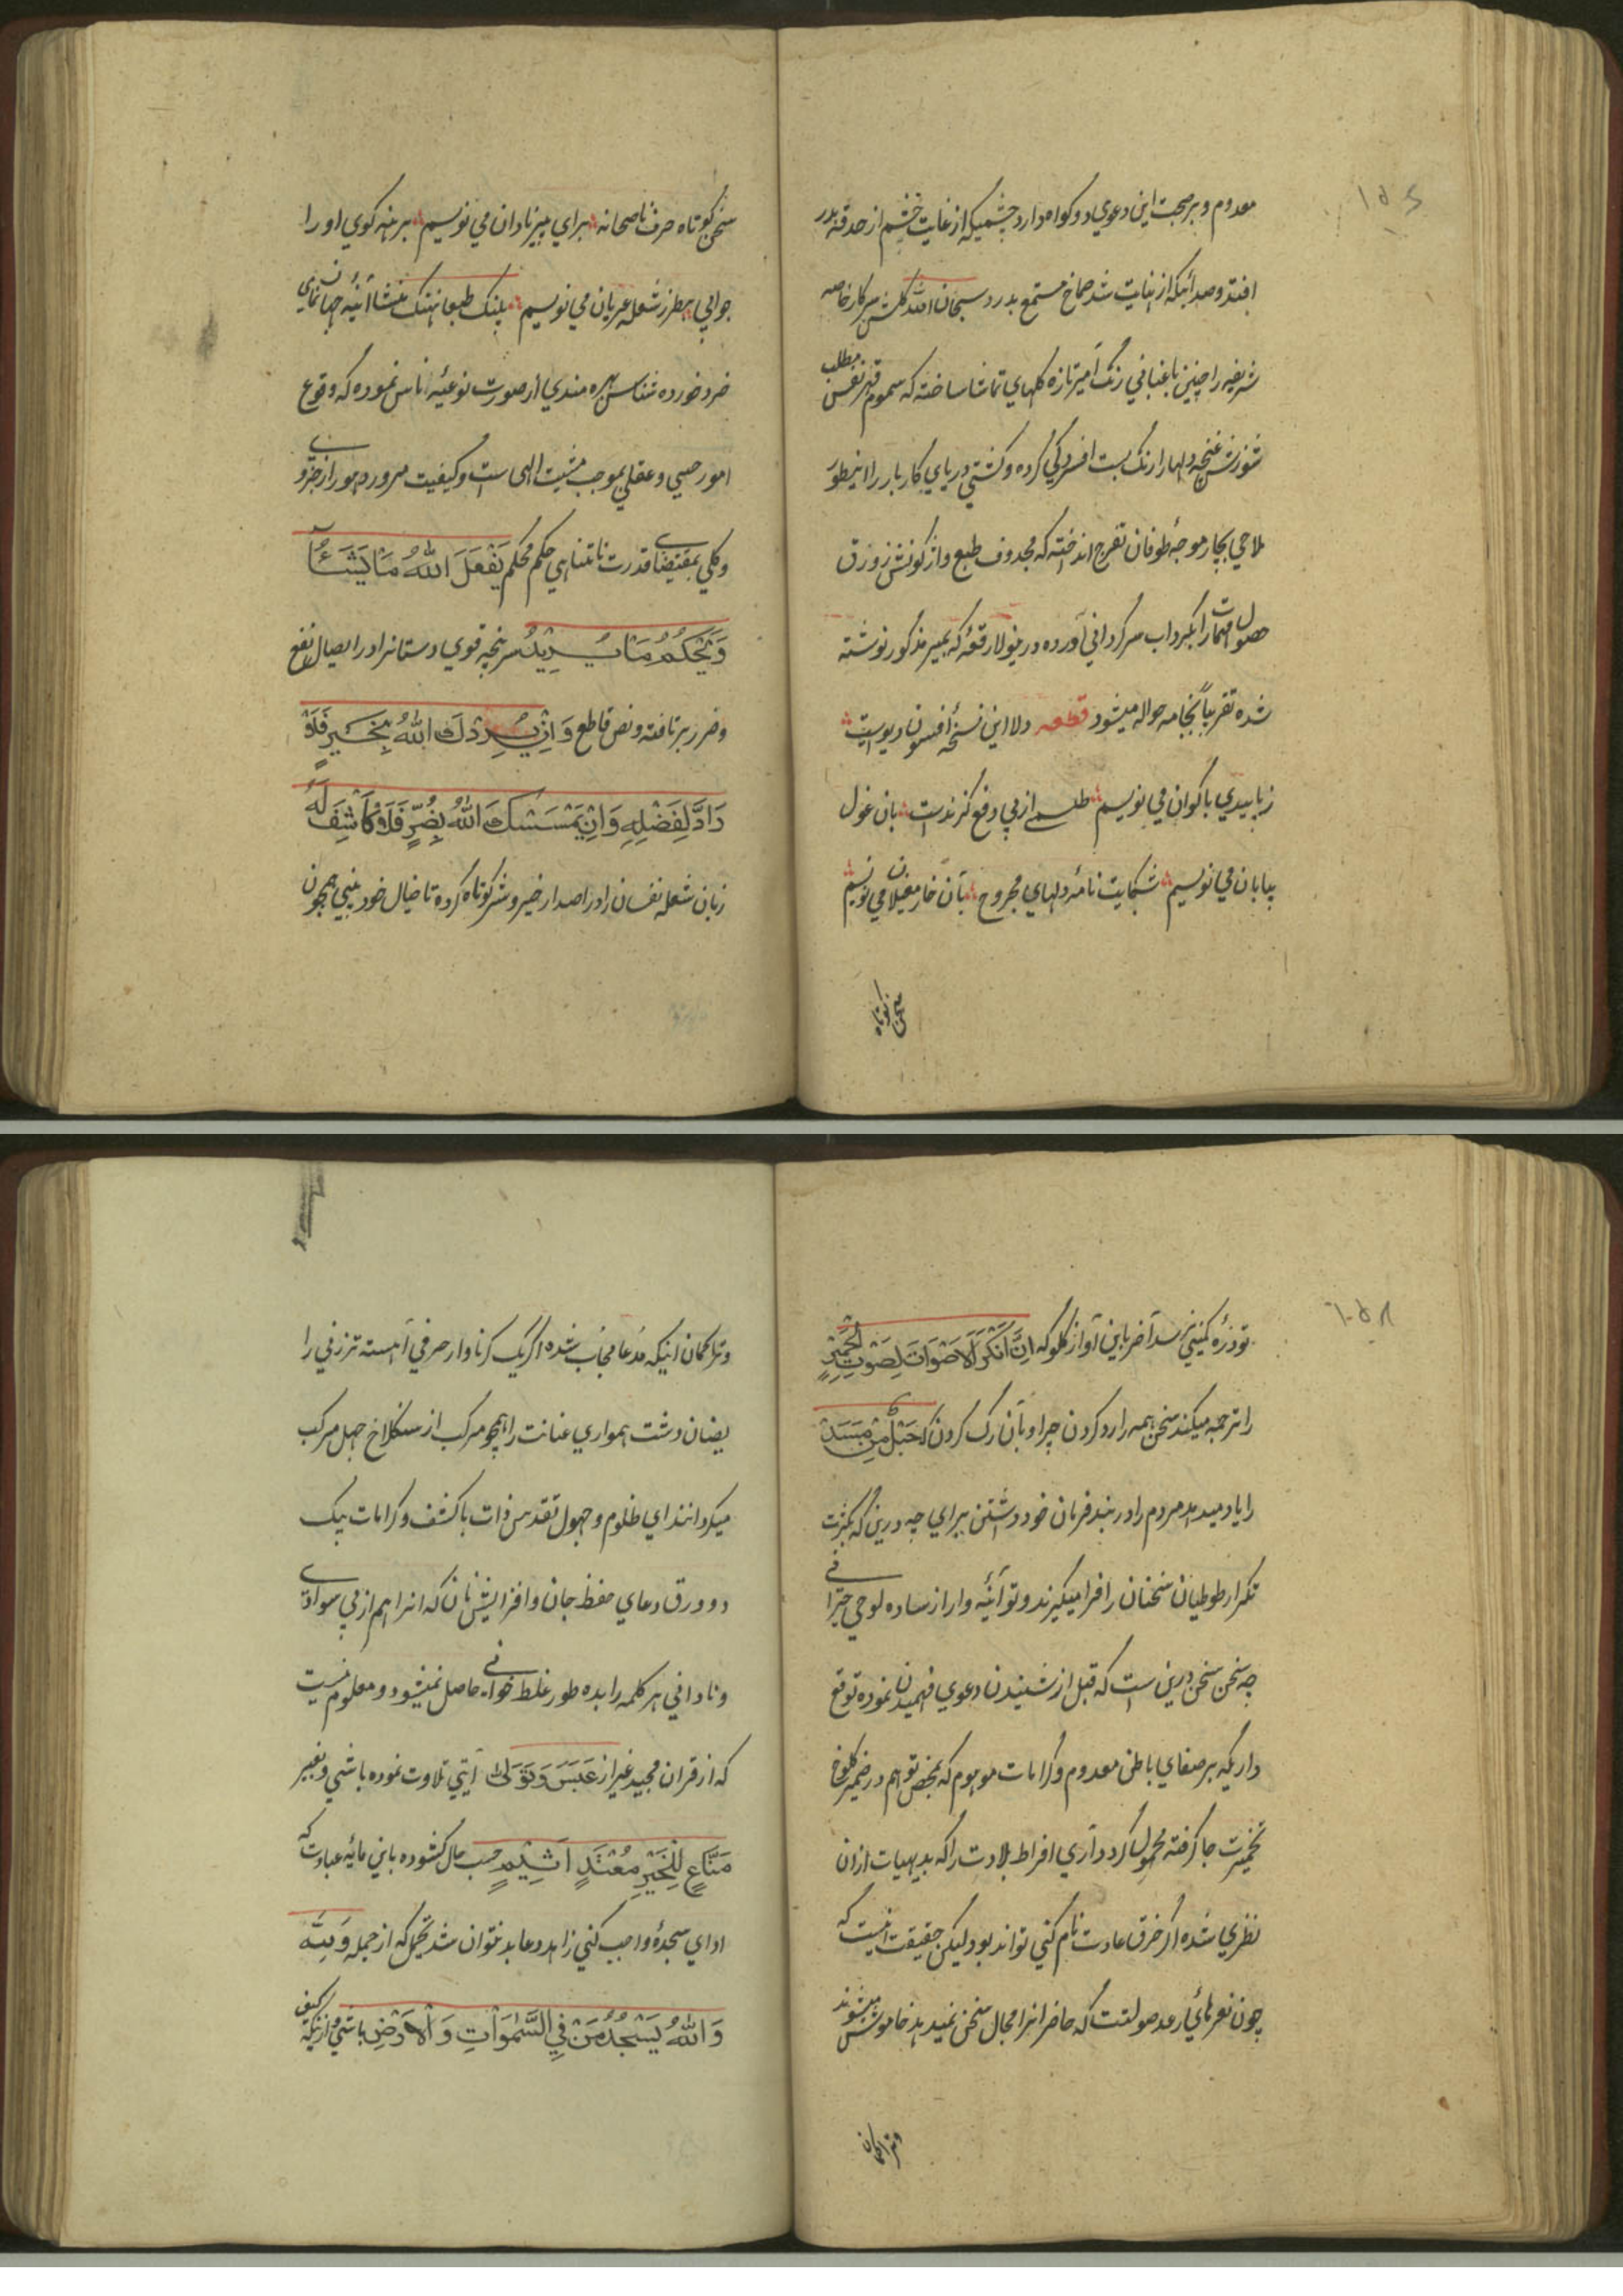 معدوم و بر صحت این دعوی دو کواه دارد چشمیکه از غایت خشم از حدقه بدر
افتد و صدائیکه از نهایت شد صماخ مستمع بدرد سبحان الله کلشن سرکار خاصه
شریفه را چنین باغبانی رنک آمیز تازه کلهای تماشا ساخته که سموم قهر نفس مطلب
سوزش غنچه دلها را رنک بست افسردکی کرده و کشتی دریای کاربار را اینطور
ملاحی بچار موجه طوفان تفرج انداخته که مجدوف طبع واژکونش زورق
حصول مهمات را بکرداب سرکردانی آورده درینولا رقعه که بمیر مذکور نوشته
شده تقریباً بخامه حواله میشود قطعه دلا این نسخه افسون دیوست
زبابیدی باکوان می نویسم طلسمی از پی دفع کزندست بان غول
بیابان می نویسم شکایت نامه دلهای مجروح بآن خار مغیلان می نویسم
سخن کوتاه
سخن کوتاه حرف ناصحانه برای میر نادان می نویسم برهنه کوی او را
جوابی بطرز شعله عریان می نویسم پلنک طبعا نهنک منشا آئینه جهان نمای
خرد خورده شناس بهره مندی از صورت نوعیه اناس نموده که وقوع
امور حسی و عقلی بموجب مشیت الهی است و کیفیت مرور دهور از جزوی
و کلی بمقتضای قدرت نامتناهی حکم محکم یَفْعَلَ اللهُ مَا یَشَآءُ
وَیَحْکُمُ مَا یُرِیْدُ سرپنجه قوی دستانرا در ایصال نفع
و ضرر برتافته و نص قاطع وَاِنْ یُرِدْكَ اللهُ بِخَیْرٍ فَلَا
رَادَّ لِفَضْلِهِ وَاِنْ یَمْسَسْكَ اللهُ بِضُرٍّ فَلَا کَاشِفَ لَهُ
زبان شعله نفسان را در اصدار خیر و شر کوتاه کرده تا خیال خود بینی همچون
تو ذره کمینی رسد آخر باین آواز کلو که اِنَّ اَنْکَرَ الْاَصْوَاتِ لَصَوْتُ الْحَمِیْرِ
را ترجمه میکند سخن همه را رد کردن چرا و بآن رک کردن که حَبْلٌ مِنْ مَسَدٍ
را یاد میدهد مردم را در بند فرمان خود داشتن برای چه درین که بکثرت
تکرار طوطیان سخنان را فرا میکیرند و تو آئینه وار از ساده لوحی حیرانی
چه سخن سخن درین است که قبل از شنیدن دعوی فهمیدن نموده توقع
داریکه بر صفای باطن معدوم و کرامات موهوم که بمخض توهم در ضمیر کلوخ
تخمیرت جا کرفته محمول کردد آری افراط بلادت را که بدیهیات ازان
نظری شده اکر خرق عادت نام کنی تواند بود لیکن حقیقت اینست که
چون نعرهای رعد صولتت که حاضرانرا مجال سخن نمیدهد خاموش میشوند
و ترا کمان
و ترا کمان اینکه مدعا مجاب شده اکر یک کرناوار حرفی آهسته تر زنی را
یضان دشت همواری عنانت را همچو مرکب از سنکلاخ جهل مرکب
میکردانند ای ظلوم و جهول تقدس ذات با کشف و کرامات بیک
دو ورق دعای حفظ جان و افزایش نان که انرا هم از بی سوادی
و نادانی هر کلمه را بده طور غلط خوانی حاصل نمیشود و معلوم نیست
که از قران مجید غیر از عَبَسَ وَتَوَلّٰی آیتی تلاوت نموده باشی و بغیر
مَنَّاعٍ لِلْخَیْرِ مُعْتَدٍ اَثِیْمٍ حسب حال کشوده باین مایه عبادت که
ادای سجدهٔ واجب کنی زاهد و عابد نتوان شد تحمل که از جمله وَلِلّٰه
وَاللهُ یَسْجُدُ مَنْ فِی السَّمٰوَاتِ وَالْاَرْضِ باشی و ازینکه